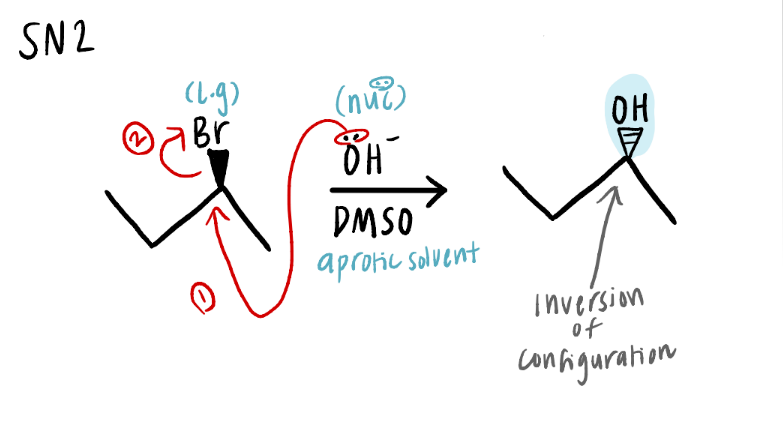 SN2
(l.g)
(nuc)
②
Br
ÖH⁻
OH
DMSO
aprotic solvent
①
Inversion
of
configuration